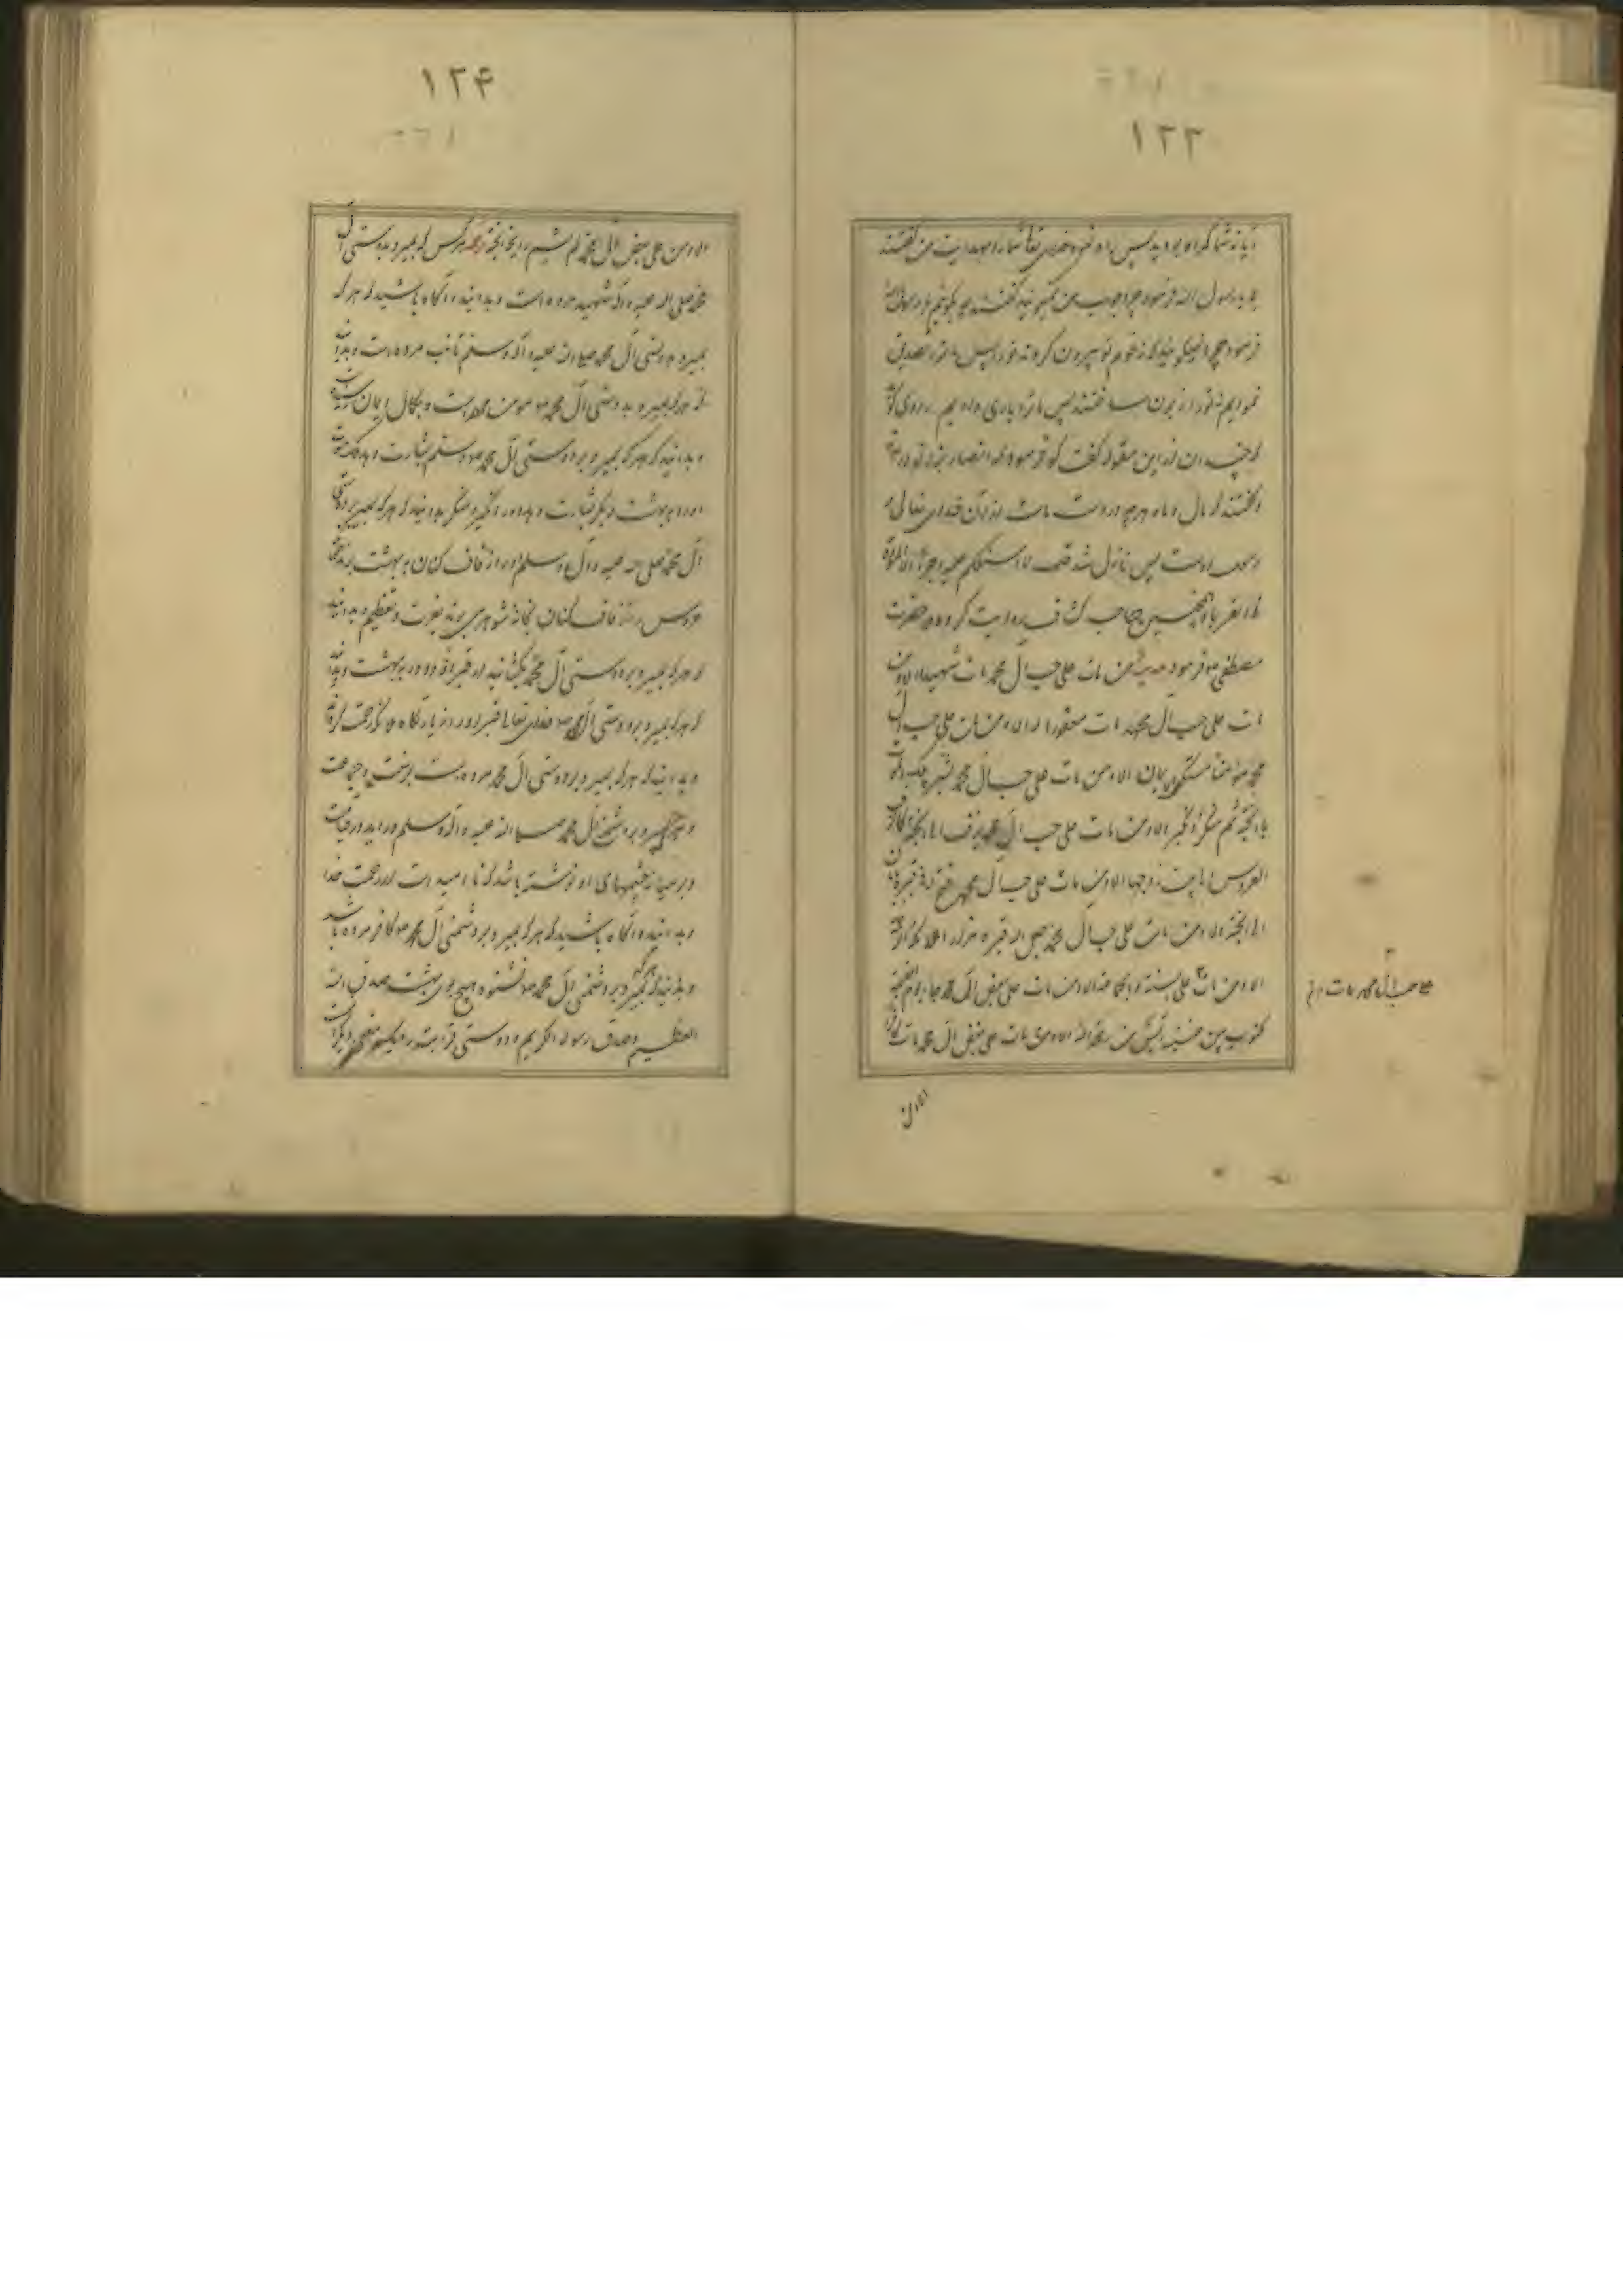 ۱۲۳
آیا نه شما گمراه بودید پس راه نمود خدای تعالی شما را بهدایت من گفتند
بلی یا رسول الله فرمود چرا جواب من نمیگوئید گفتند چه بگوئیم یا رسول الله
فرمود چرا نمیگوئید که قوم تو بیرون کردند تو را پس ما تو را تصدیق
نمودیم و تو را زبون ساختند پس ما ترا یاری دادیم راوی گوید
که چندان از این مقوله گفت که فرمود که انصار بزانو در
و گفتند که مال و ما هر چه در دست ماست از آن خدای تعالی و
رسول اوست پس نازل شد قل لا اسئلکم علیه اجرا الا المودة
فی القربی و همچنین صاحب کشاف روایت کرده که حضرت
مصطفی ص فرمود حدیث من مات علی حب آل محمد مات شهیدا الا و من
مات علی حب آل محمد مات مغفورا له الا و من مات علی حب آل
محمد مؤمنا مستکمل الایمان الا و من مات علی حب آل محمد بشره ملک الموت
بالجنة ثم منکر و نکیر الا و من مات علی حب آل محمد یزف الی الجنة کما تزف
العروس الی بیت زوجها الا و من مات علی حب آل محمد فتح له فی قبره بابان
الی الجنة الا و من مات علی حب آل محمد جعل الله قبره مزار ملائکة الرحمة
الا و من مات علی السنة و الجماعة الا و من مات علی بغض آل محمد جاء یوم القیمة
مکتوب بین عینیه آیس من رحمة الله الا و من مات علی بغض آل محمد مات کافرا
علی حب آل محمد مات
الا و من
۱۲۴
الا و من علی بغض آل محمد لم یشم رایحة الجنة ترجمه هر کس که بمیرد بدوستی آل
محمد صلی الله علیه و آله شهید مرده است و بدانید و آگاه باشید که هر که
بمیرد بدوستی آل محمد صلی الله علیه و آله و سلم تائب مرده است و بدانید
که هر که بمیرد بدوستی آل محمد ص مؤمن مرده است و بکمال ایمان رسیده
و بدانید که هر که بمیرد بر دوستی آل محمد ص و سلم بشارت دهد ملک موت
او را ببهشت و دیگر بشارت دهد او را نکیر و منکر بدانید که هر که بمیرد بر دوستی
آل محمد صلی الله علیه و آل و سلم او را زفاف کنان به بهشت برند همچنانکه
عروس را زفاف کنان بخانه شوهر میبرند بعزت و تعظیم و بدانید
که هر که بمیرد بر دوستی آل محمد بگشایند در قبر او دو در به بهشت و بدانید
که هر که بمیرد بر دوستی آل محمد ص خدای تعالی قبر او را زیارتگاه ملائکه رحمت کرداند
و بدانید که هر که بمیرد بر دوستی آل محمد مرده است بر سنت و جماعت
و هر که بمیرد بر دشمنی آل محمد صلی الله علیه و آله و سلم در آید در قیامت
در میان چشمهای او نوشته باشد که نا امید است از رحمت خدا
و بدانید و آگاه باشید که هر که بمیرد بر دشمنی آل محمد ص کافر مرده باشد
و بدانید که هر که بمیرد بر دشمنی آل محمد ص نشنود هیچ بوی بهشت صدق الله
العظیم و صدق رسوله الکریم و دوستی قرابت رسول